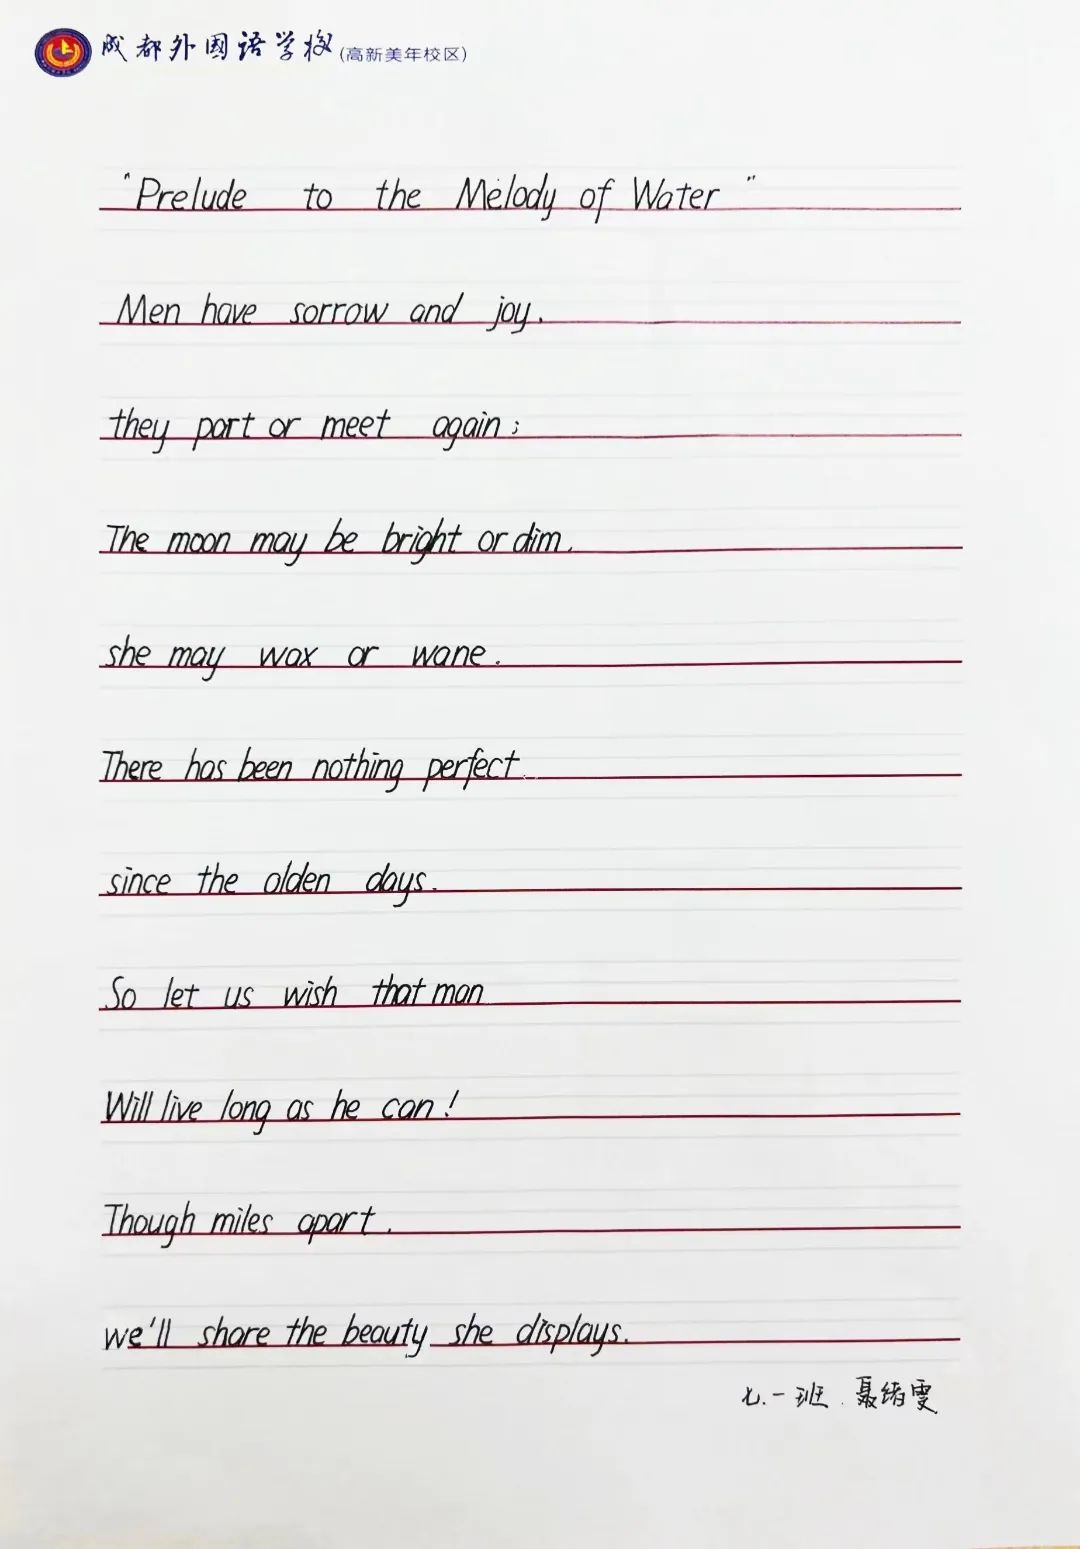 成都外国语学校(高新美年校区)
"Prelude to the Melody of Water"
Men have sorrow and joy.
they part or meet again;
The moon may be bright or dim.
she may wax or wane.
There has been nothing perfect
since the olden days.
So let us wish that man
Will live long as he can!
Though miles apart.
we'll share the beauty she displays.
七.一班.聂绪雯